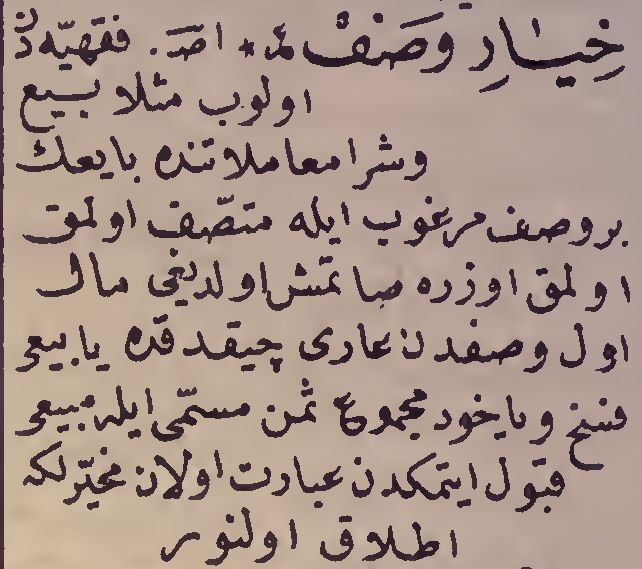 خِيَارِ وَصَفْ عـ * اصـ . فقهيّه دن
اولوب مثلا بيع
وشرا معاملاتنده بايعك
بر وصف مرغوب ايله متّصف اولمق
اولمق اوزره صاتمش اولديغى مال
اول وصفدن عارى چيقدقده يا بيعى
فسخ ويا خود مجموع ثمن مسمّى ايله مبيعى
قبول ايتمكدن عبارت اولان مخيّرلكه
اطلاق اولنور